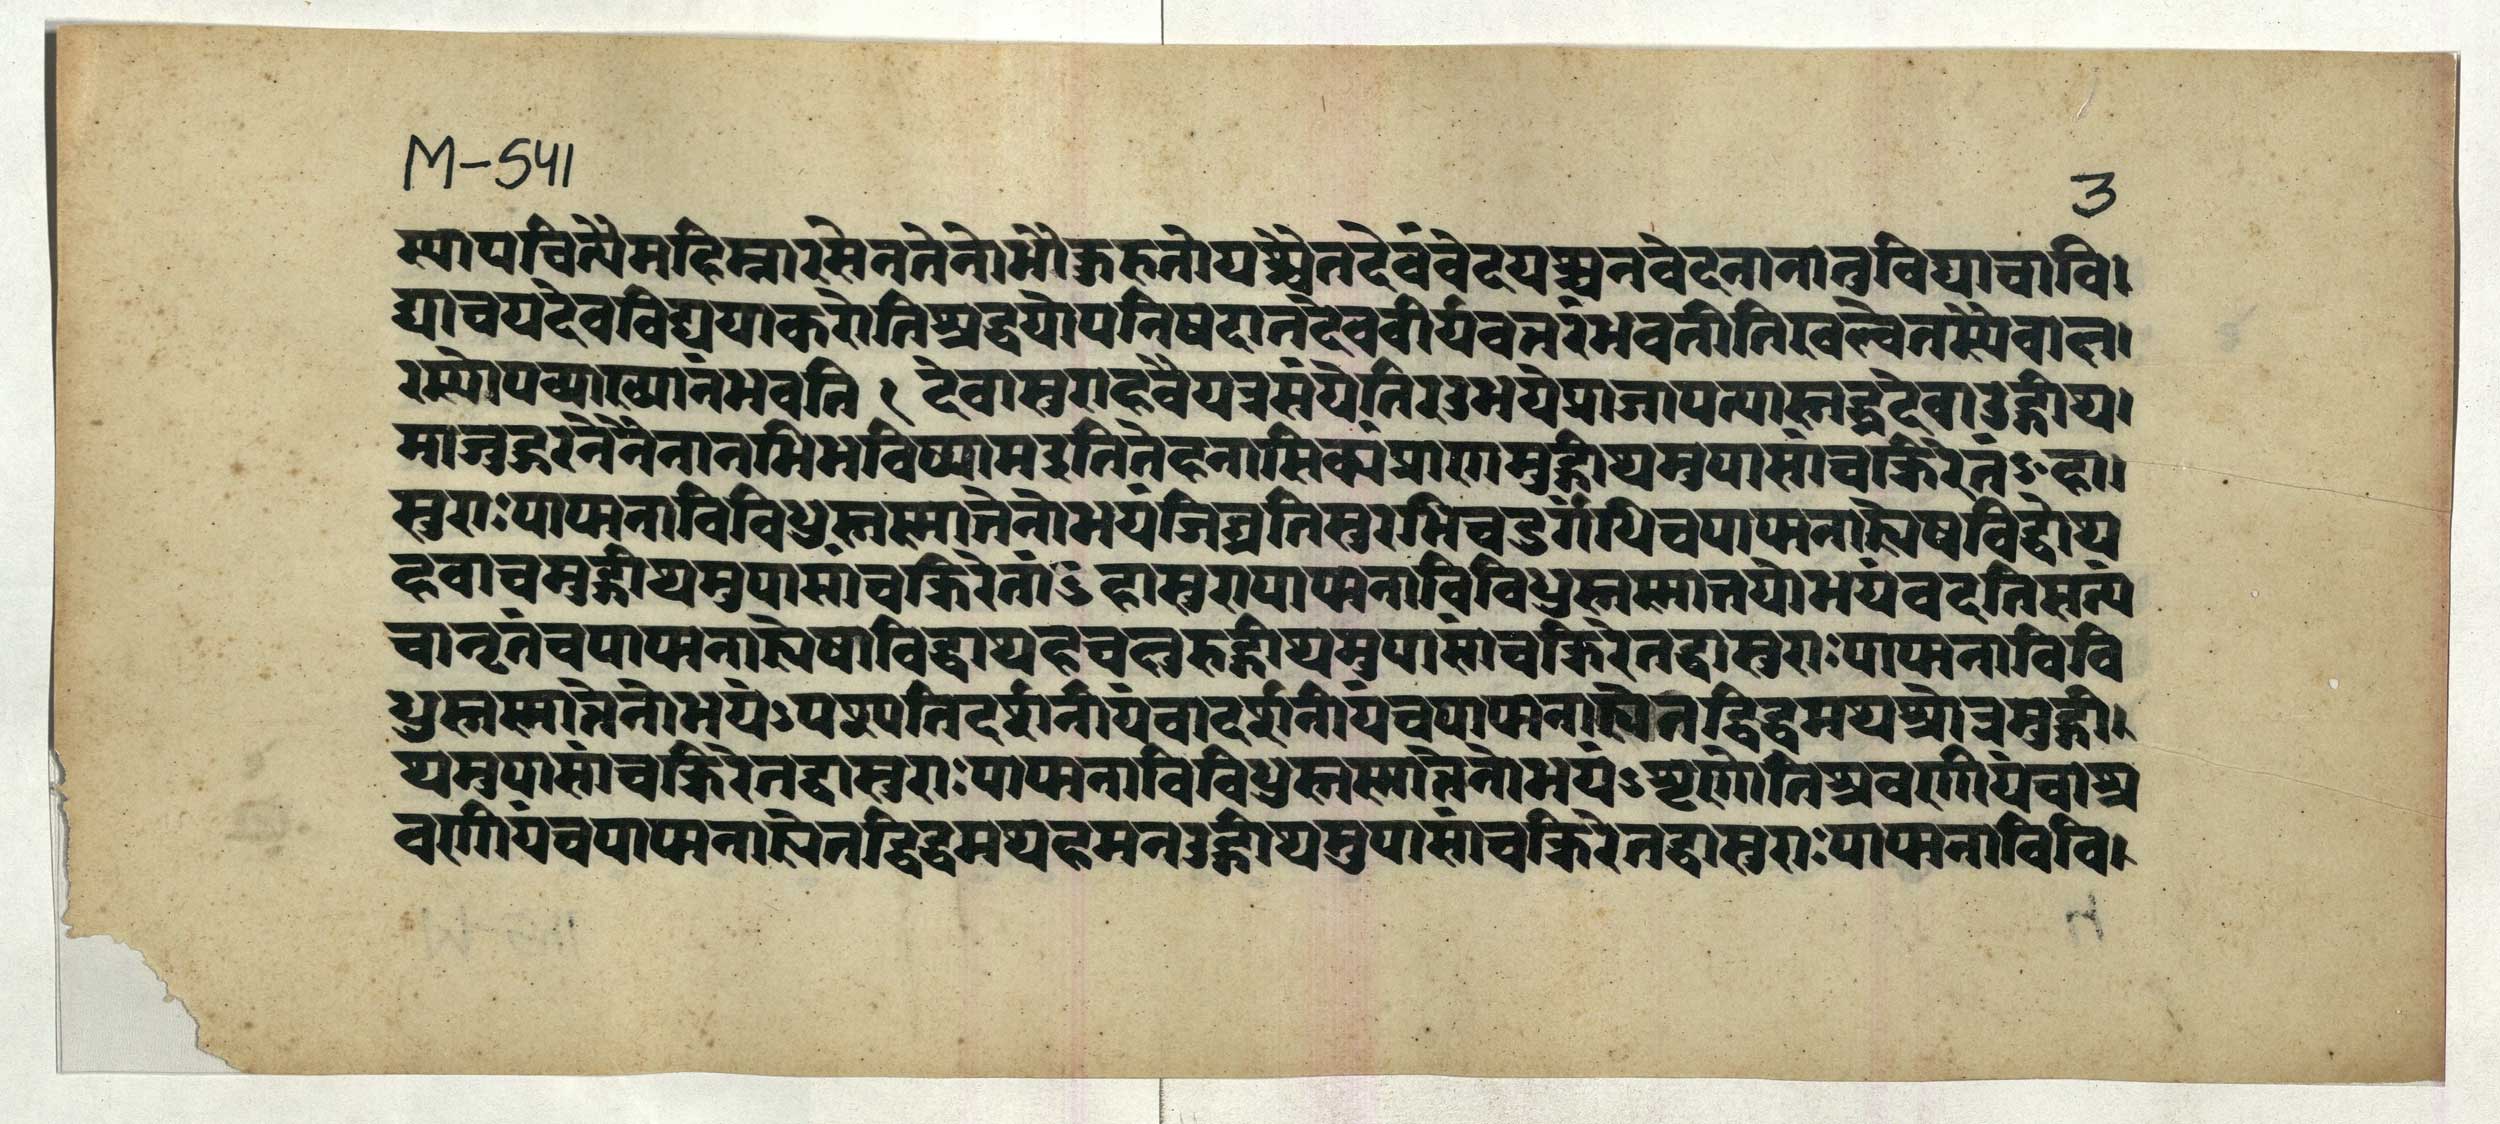 M-541
3
स्यापचित्यैमहिम्नारसेनतेनोभौकुरुतोयश्चैतदेवंवेदयश्चनवेदनानातुविद्याचावि।
द्याचयदेवविद्ययाकरोतिश्रद्धयोपनिषदातदेववीर्यवत्तरंभवतीतिखल्वेतस्यैवाक्ष।
रस्योपव्याख्यानंभवति १ देवासुराहवैयत्रसंयेतिरउभयेप्राजापत्यास्तद्धदेवाउद्गीथ।
माजह्रुरनेनैनानभिभविष्यामइतितेहनासिक्यंप्राणमुद्गीथमुपासांचक्रिरेतंऽहा।
सुराःपाप्मनाविविधुस्तस्मात्तेनोभयंजिघ्रतिसुरभिचदुर्गंधिचपाप्मनाह्येषविद्धोथ
हवाचमुद्गीथमुपासांचक्रिरेतांऽहासुरापाप्मनाविविधुस्तस्मात्तयोभयंवदतिसत्यं
चानृतंचपाप्मनाह्येषाविद्धाथहचक्षुरुद्गीथमुपासांचक्रिरेतद्धासुराःपाप्मनाविवि
धुस्तस्मात्तेनोभयंऽपश्यतिदर्शनीयंचादर्शनीयंचपाप्मनाह्येतद्विद्धमथश्रोत्रमुद्गी।
थमुपासांचक्रिरेतद्धासुराःपाप्मनाविविधुस्तस्मात्तेनोभयंऽशृणोतिश्रवणीयंचाश्र
वणीयंचपाप्मनाह्येतद्विद्धमथहमनउद्गीथमुपासांचक्रिरेतद्धासुराःपाप्मनाविवि।